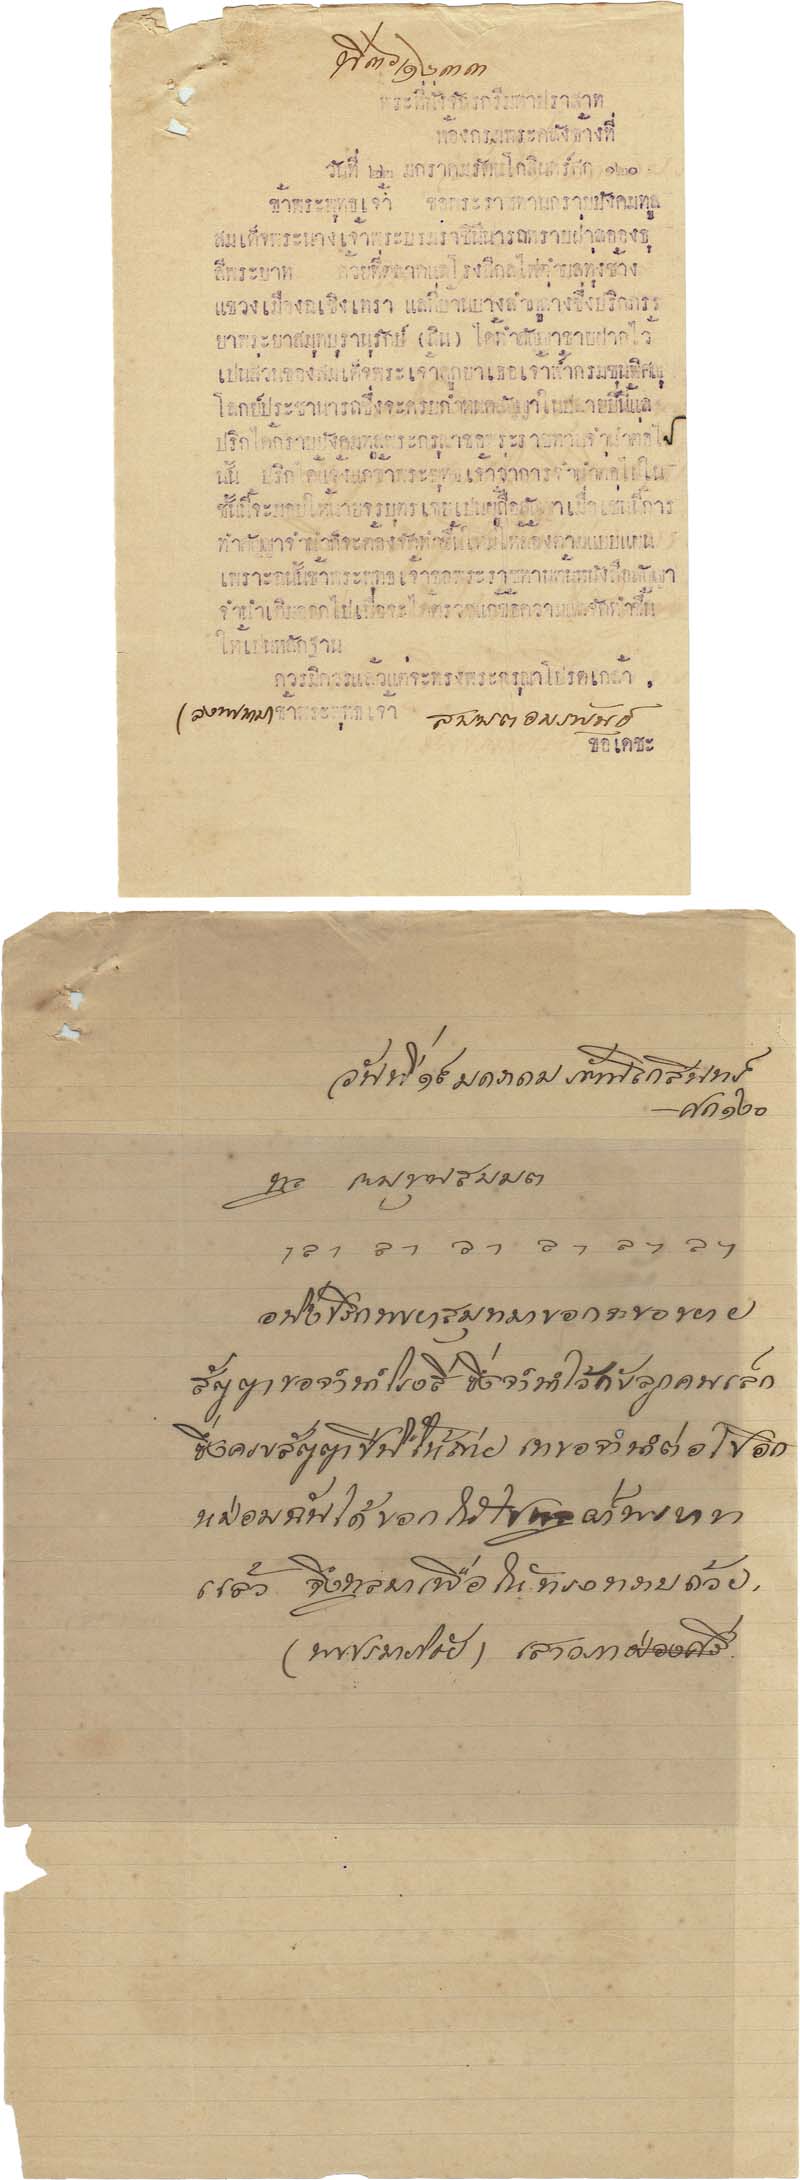 ที่ ๓๖/๑๒๓๓
พระที่นั่งจักรกรีมหาปราสาท
ห้องกรมพระคลังข้างที่
วันที่ ๒๒ มกราคมรัตนโกสินทร์ศก ๑๒๐
ข้าพระพุทธเจ้า ขอพระราชทานกราบบังคมทูล
สมเด็จพระนางเจ้าพระบรมราชินีนารถทราบฝ่าลอองธุ
ลีพระบาท ด้วยที่ตลาดแลโรงสีกลไฟตำบลทุ่งช้าง
แขวงเมืองฉเชิงเทรา แลที่บ้านบางลำพูล่างซึ่งปริกภรร
ยาพระยาสมุทบุรานุรักษ์ (สิน) ได้ทำสัญาขายฝากไว้
เปนส่วนของสมเด็จพระเจ้าลูกยาเธอเจ้าฟ้ากรมขุนพิศณุ
โลกย์ประชานารถซึ่งจะครบกำหนดสัญาในปลายปีนี้แล
ปริกได้กราบบังคมทูลพระกรุณาขอพระราชทานจำนำต่อไป
นั้น ปริกได้แจ้งแก่ข้าพระพุทธเจ้าว่าการจำนำต่อไปใน
ชั้นนี้จะมอบให้นายจรบุตรเขยเปนผู้ถือสัญาเมื่อเช่นนี้การ
ทำสัญาจำนำก็จะต้องจัดทำขึ้นใหม่ให้ต้องตามแบบแผน
เพราะฉนั้นข้าพระพุทธเจ้าขอพระราชทานต้นหนังสือสัญา
จำนำเดิมออกไปเพื่อจะได้ตรวจแก้ข้อความแลจัดทำขึ้น
ให้เปนหลักฐาน
ควรมิควรแล้วแต่จะทรงพระกรุณาโปรดเกล้า ,
(ลงพระนาม) ข้าพระพุทธเจ้า สมมตอมรพันธ์
ขอเดชะ
วันที่ ๑๕ มกราคม รัตนโกสินทร์
—ศก ๑๒๐
ทูล กรมขุนสมมต
อนึ่งปริกพระยาสมุทมาบอกจะขอขยาย
สัญญาขอจำนำโรงสี ซึ่งจำนำไว้กับลูกคนเล็ก
ซึ่งครบสัญญาปีนี้ให้ขาย เขาขอจำนำต่อไปอีก
หม่อมฉันได้บอกให้ไป
แล้ว จึงทูลมาเพื่อให้ทรงทราบด้วย.
(พระบรมนามาภิไธย) เสาวภาผ่องศรี